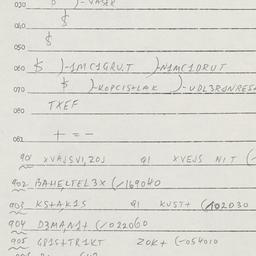 030 )-VASER
040 $
050 $
060 $ )-1MC1GRUT )N1MC1DRUT
070 $ )-KOPCIS+LAK )-UDL3RJNRES
080 TXEF
081 + = -
901 XVAJSVI,ZOJ 91 XVEJS NIT (-
902 BAHELTEL3X (-169040
903 KS+AK1S 91 KVST+ (-102030
904 D3MAN1+ (-022060
905 GRIS+TR1KT ZOK+ (-054010